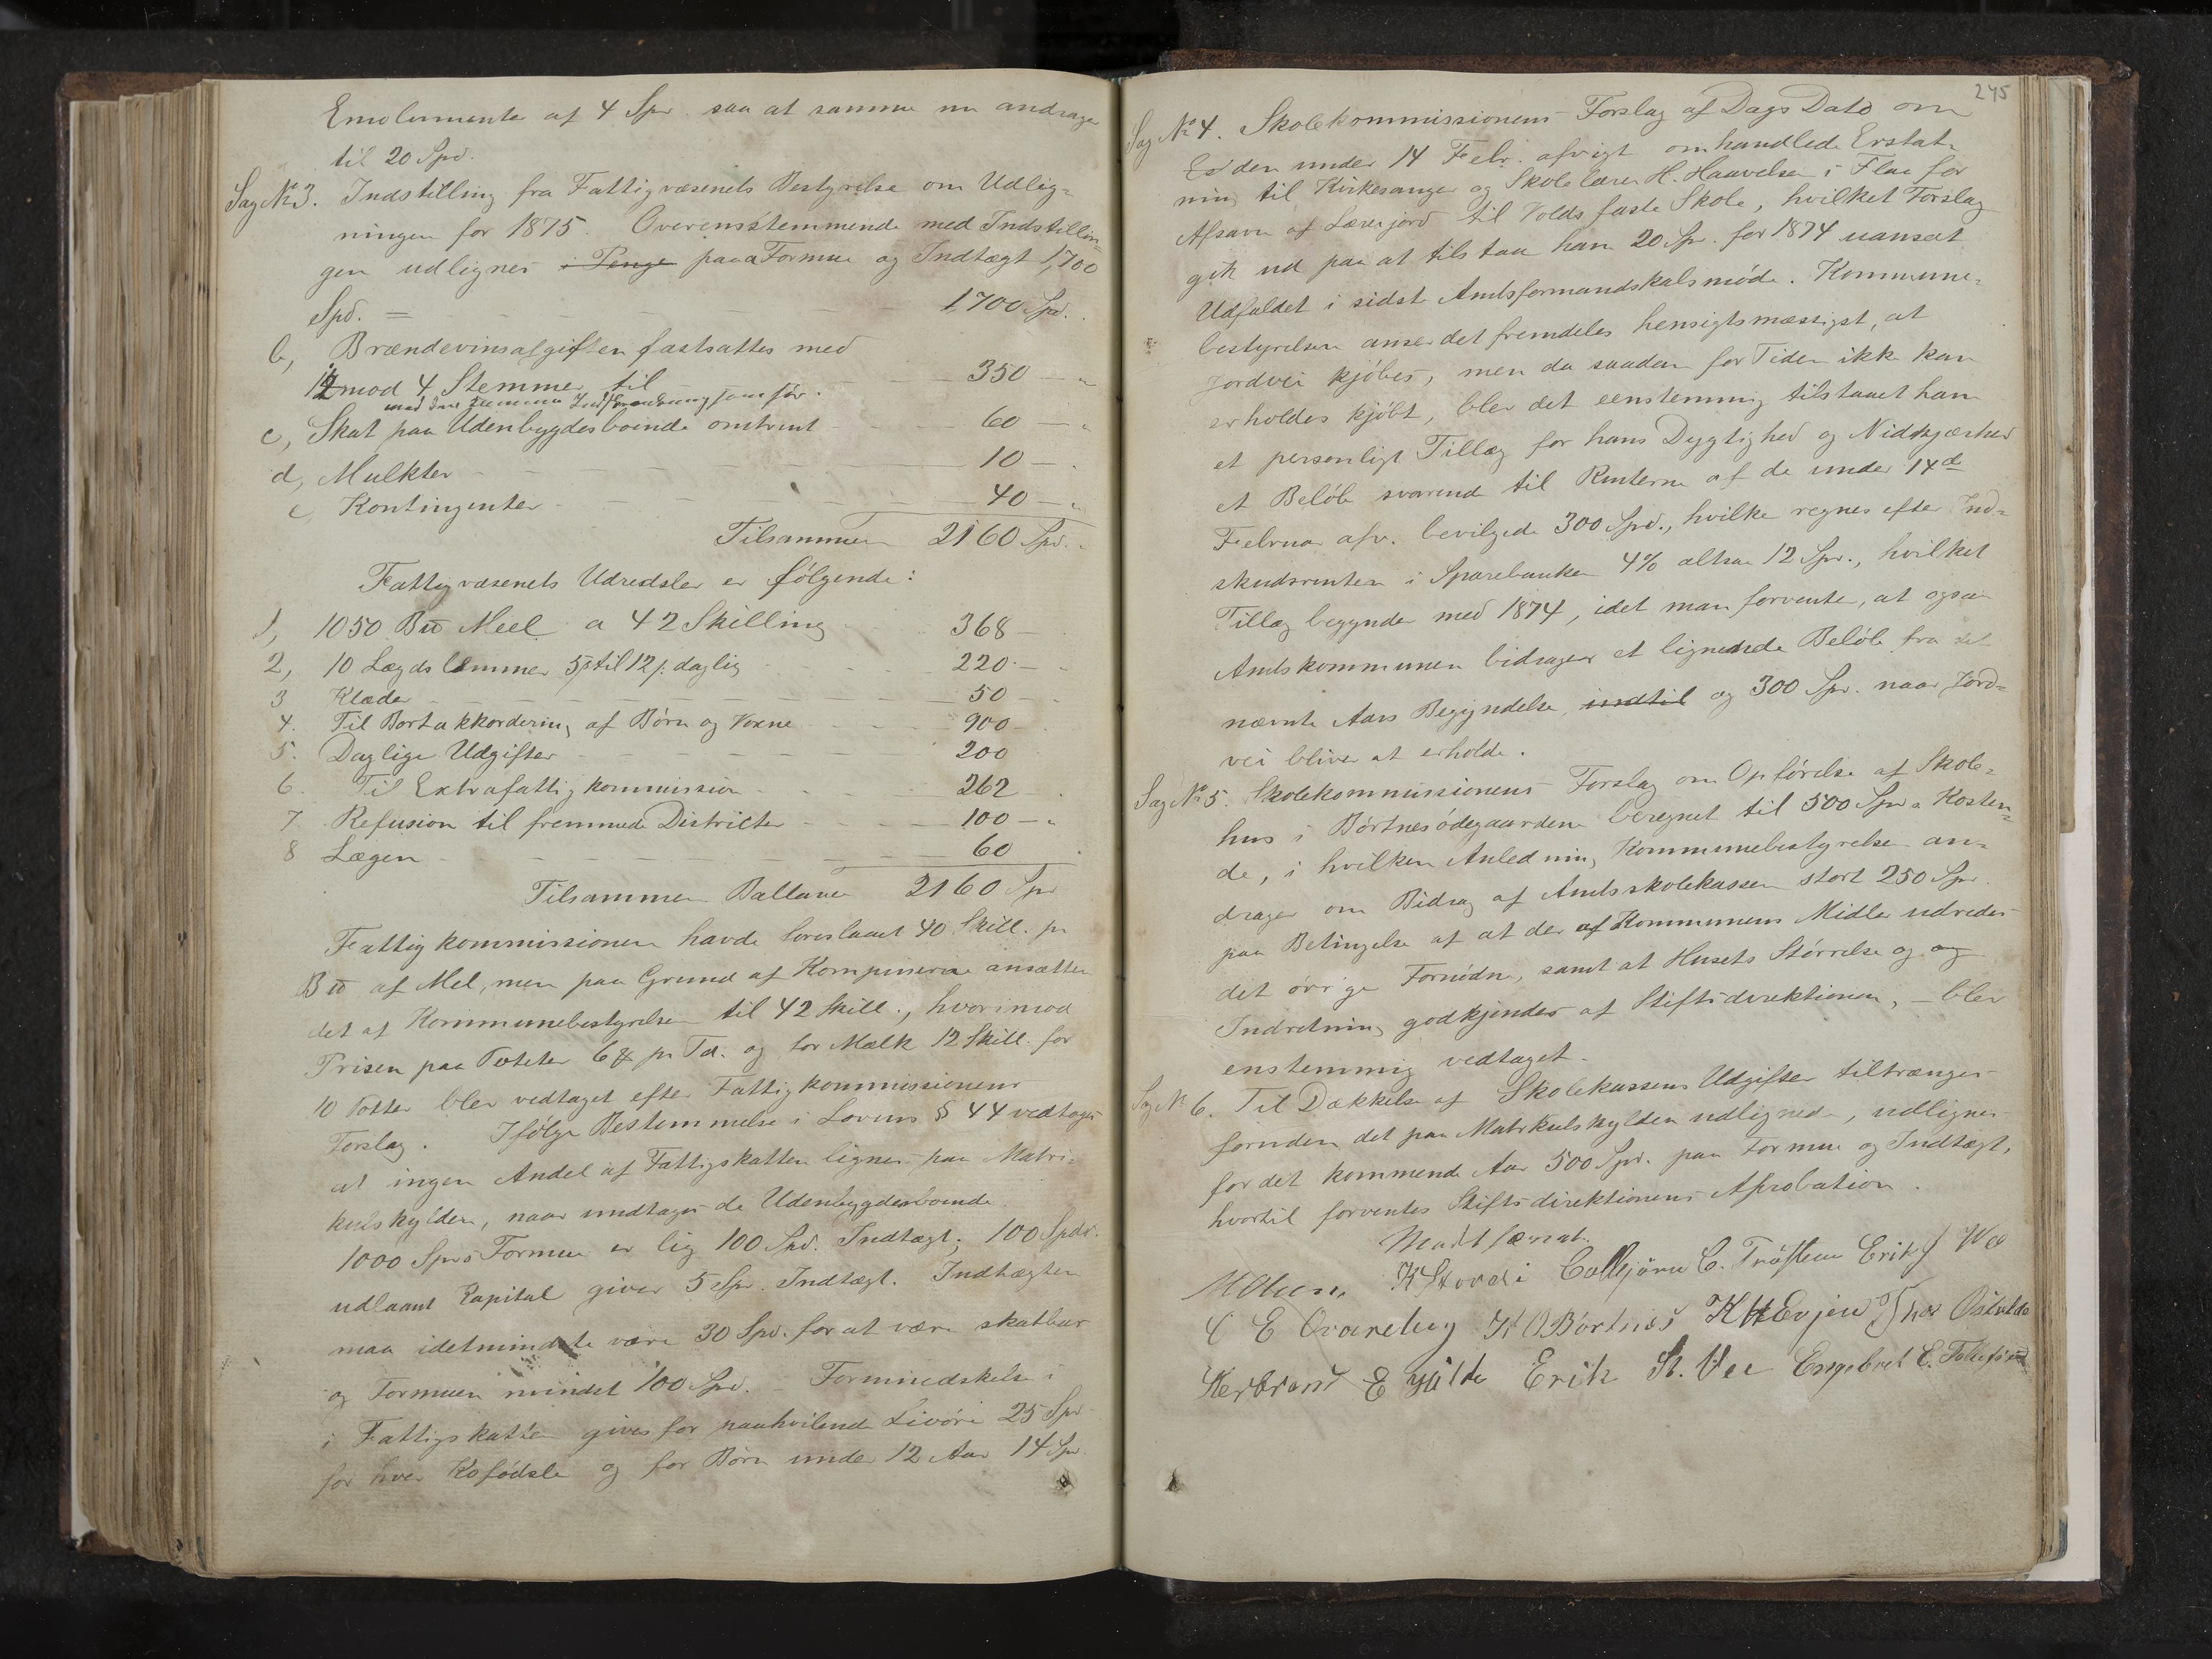 Emolumenter af 4 Spd. saa at samme nu andrage
til 20 Spd.
Sag No 3. Indstilling fra Fattigvæsenets Bestyrelse om Udlig-
ningen for 1875. Overensstemmende med Indstillin-
gen udlignes i Penge paa a Formue og Indtægt 1,700
Spd. = 1,700 Spd.
b, Brændevinsafgiften fastsattes med
12 mod 4 Stemmer til 350 - "
med
c, Skat paa Udenbygdesboende omtrent 60 - "
d, Mulkter 10 - "
e Kontingenter 40 - "
Tilsammen 2160 Spd.
Fattigvæsenets Udredsler er følgende:
1, 1050 B℔ Meel a 42 Skilling 368 -
2, 10 Lægdslemmer 5 ß til 12 ß daglig 220 -
3 Klæder 50 -
4. Til Bortakkordering af Børn og Voxne 900 -
5. Daglige Udgifter 200
6. Til Extrafattigkommission 262
7. Refusion til fremmede Districter 100 - "
8 Lægen 60
Tilsammen Ballance 2160 Spd
Fattigkommissionen havde foreslaaet 40 Skill. pr
B℔ af Mel, men paa Grund af Kornpriserne ansættes
det af Kommunebestyrelsen til 42 Skill., hvorimod
Prisen paa Poteter 6 ort pr Td. og for Mælk 12 Skill. for
10 Potter blev vedtaget efter Fattigkommissionens
Forslag. Ifølge Bestemmelse i Lovens § 44 vedtages
at ingen Andel af Fattigskatten lignes paa Matri-
kulskylden, naar undtages de Udenbygdesboende.
1000 Spds Formue er lig 100 Spd. Indtægt; 100 Spds.
udlaant Kapital giver 5 Spd. Indtægt. Indtægten
maa idetmindste være 30 Spd. for at være skatbar
og Formuen mindst 100 Spd. - Formindskelse i
i Fattigskatten gives for paahvilende Livøre 25 Spd
for hver Koføde og for Børn under 12 Aar 14 Spd.
245
Sag No 4. Skolekommissionens Forslag af Dags Dato om
den under 14 Febr. afvigt omhandlede Erstat-
ning til Kirkesanger og Skolelærer H. Haavelsen i Flaa for
Afsavn af Lærerjord til Volds faste Skole, hvilket Forslag
gik ud paa at tilstaa ham 20 Spd. for 1874 uanseet
Udfaldet i sidste Amtsformandskabsmøde. Kommune-
bestyrelsen anser det fremdeles hensigtsmæssigst, at
Jordvei kjøbes, men da saadan for Tiden ikke kan
erholdes kjøbt, blev det eenstemmig tilstaaet ham
et personligt Tillæg for hans Dygtighed og Nidkjærhed
et Beløb svarende til Renterne af de under 14de
Februar afv. bevilgede 300 Spd., hvilke regnes efter Ind-
skudsrenten i Sparebanken 4% altsaa 12 Spd., hvilket
Tillæg begynder med 1874, idet man forventer, at ogsaa
Amtskommunen bidrager et lignende Beløb fra det
nævnte Aars Begyndelse, indtil og 300 Spd. naar Jord-
vei bliver at erholde.
Sag No 5. Skolekommissionens Forslag om Opførelse af Skole-
hus i Børtnesødegaardene beregnet til 500 Spds Kosten-
de, i hvilken Anledning Kommunebestyrelsen an-
drager om Bidrag af Amtsskolekassen stort 250 Spd.
paa Betingelse af at der af Kommunens Midler udredes
det øvrige Fornødne, samt at Husets Størrelse og og
Indretning godkjendes af Stiftsdirektionen, - blev
enstemmig vedtaget.
Sag No 6. Til Dækkelse af Skolekassens Udgifter tiltrænges
foruden det paa Matrikulskylden udlignede, udlignes
for det kommende Aar 500 Spd. paa Formue og Indtægt,
hvortil forventes Stiftsdirektionens Aprobation.
Mødet hævet.
K Stovdi C. Trøstem Erik
E K O Børtnes K H Evjen Thor
Herbrand E Erik St. Vee Engebret E.